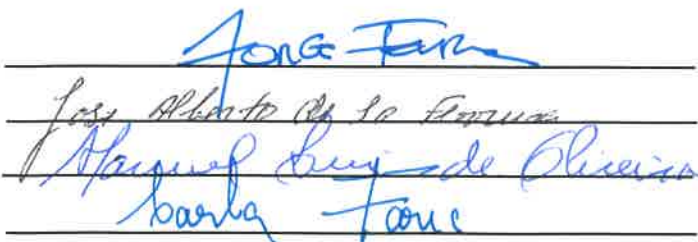 Jorge Faria
José Alberto de Sá Ferreira
Manuel Luiz de Oliveira
Carla Faria